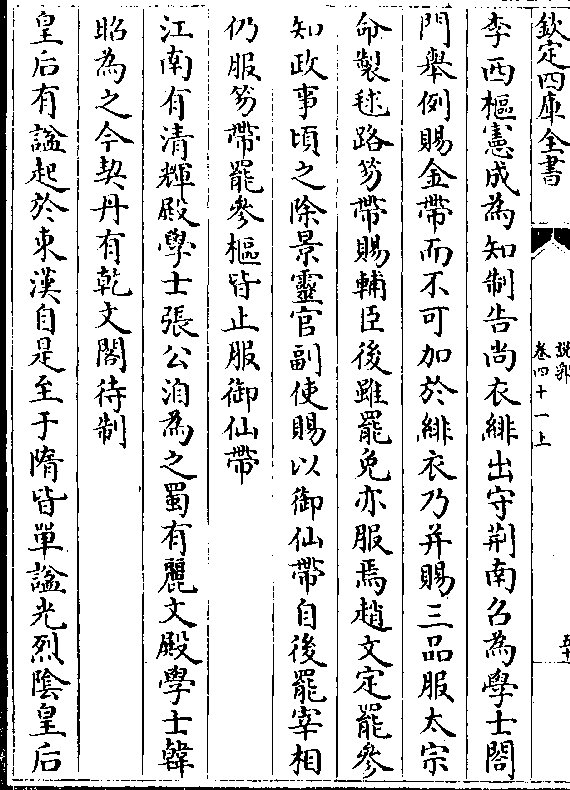 欽定四庫全書
說郛
卷四十一上
李西樞憲成為知制告尚衣緋出守荆南召為學士閤
門舉例賜金帶而不可加於緋衣乃并賜三品服太宗
命製毬路笏帶賜輔臣後雖罷免亦服焉趙文定罷參
知政事頃之除景靈官副使賜以御仙帶自後罷宰相
仍服笏帶罷參樞皆止服御仙帶
江南有清輝殿學士張公洎為之蜀有麗文殿學士韓
昭為之今契丹有乾文閣待制
皇后有諡起於東漢自是至于隋皆單諡光烈陰皇后